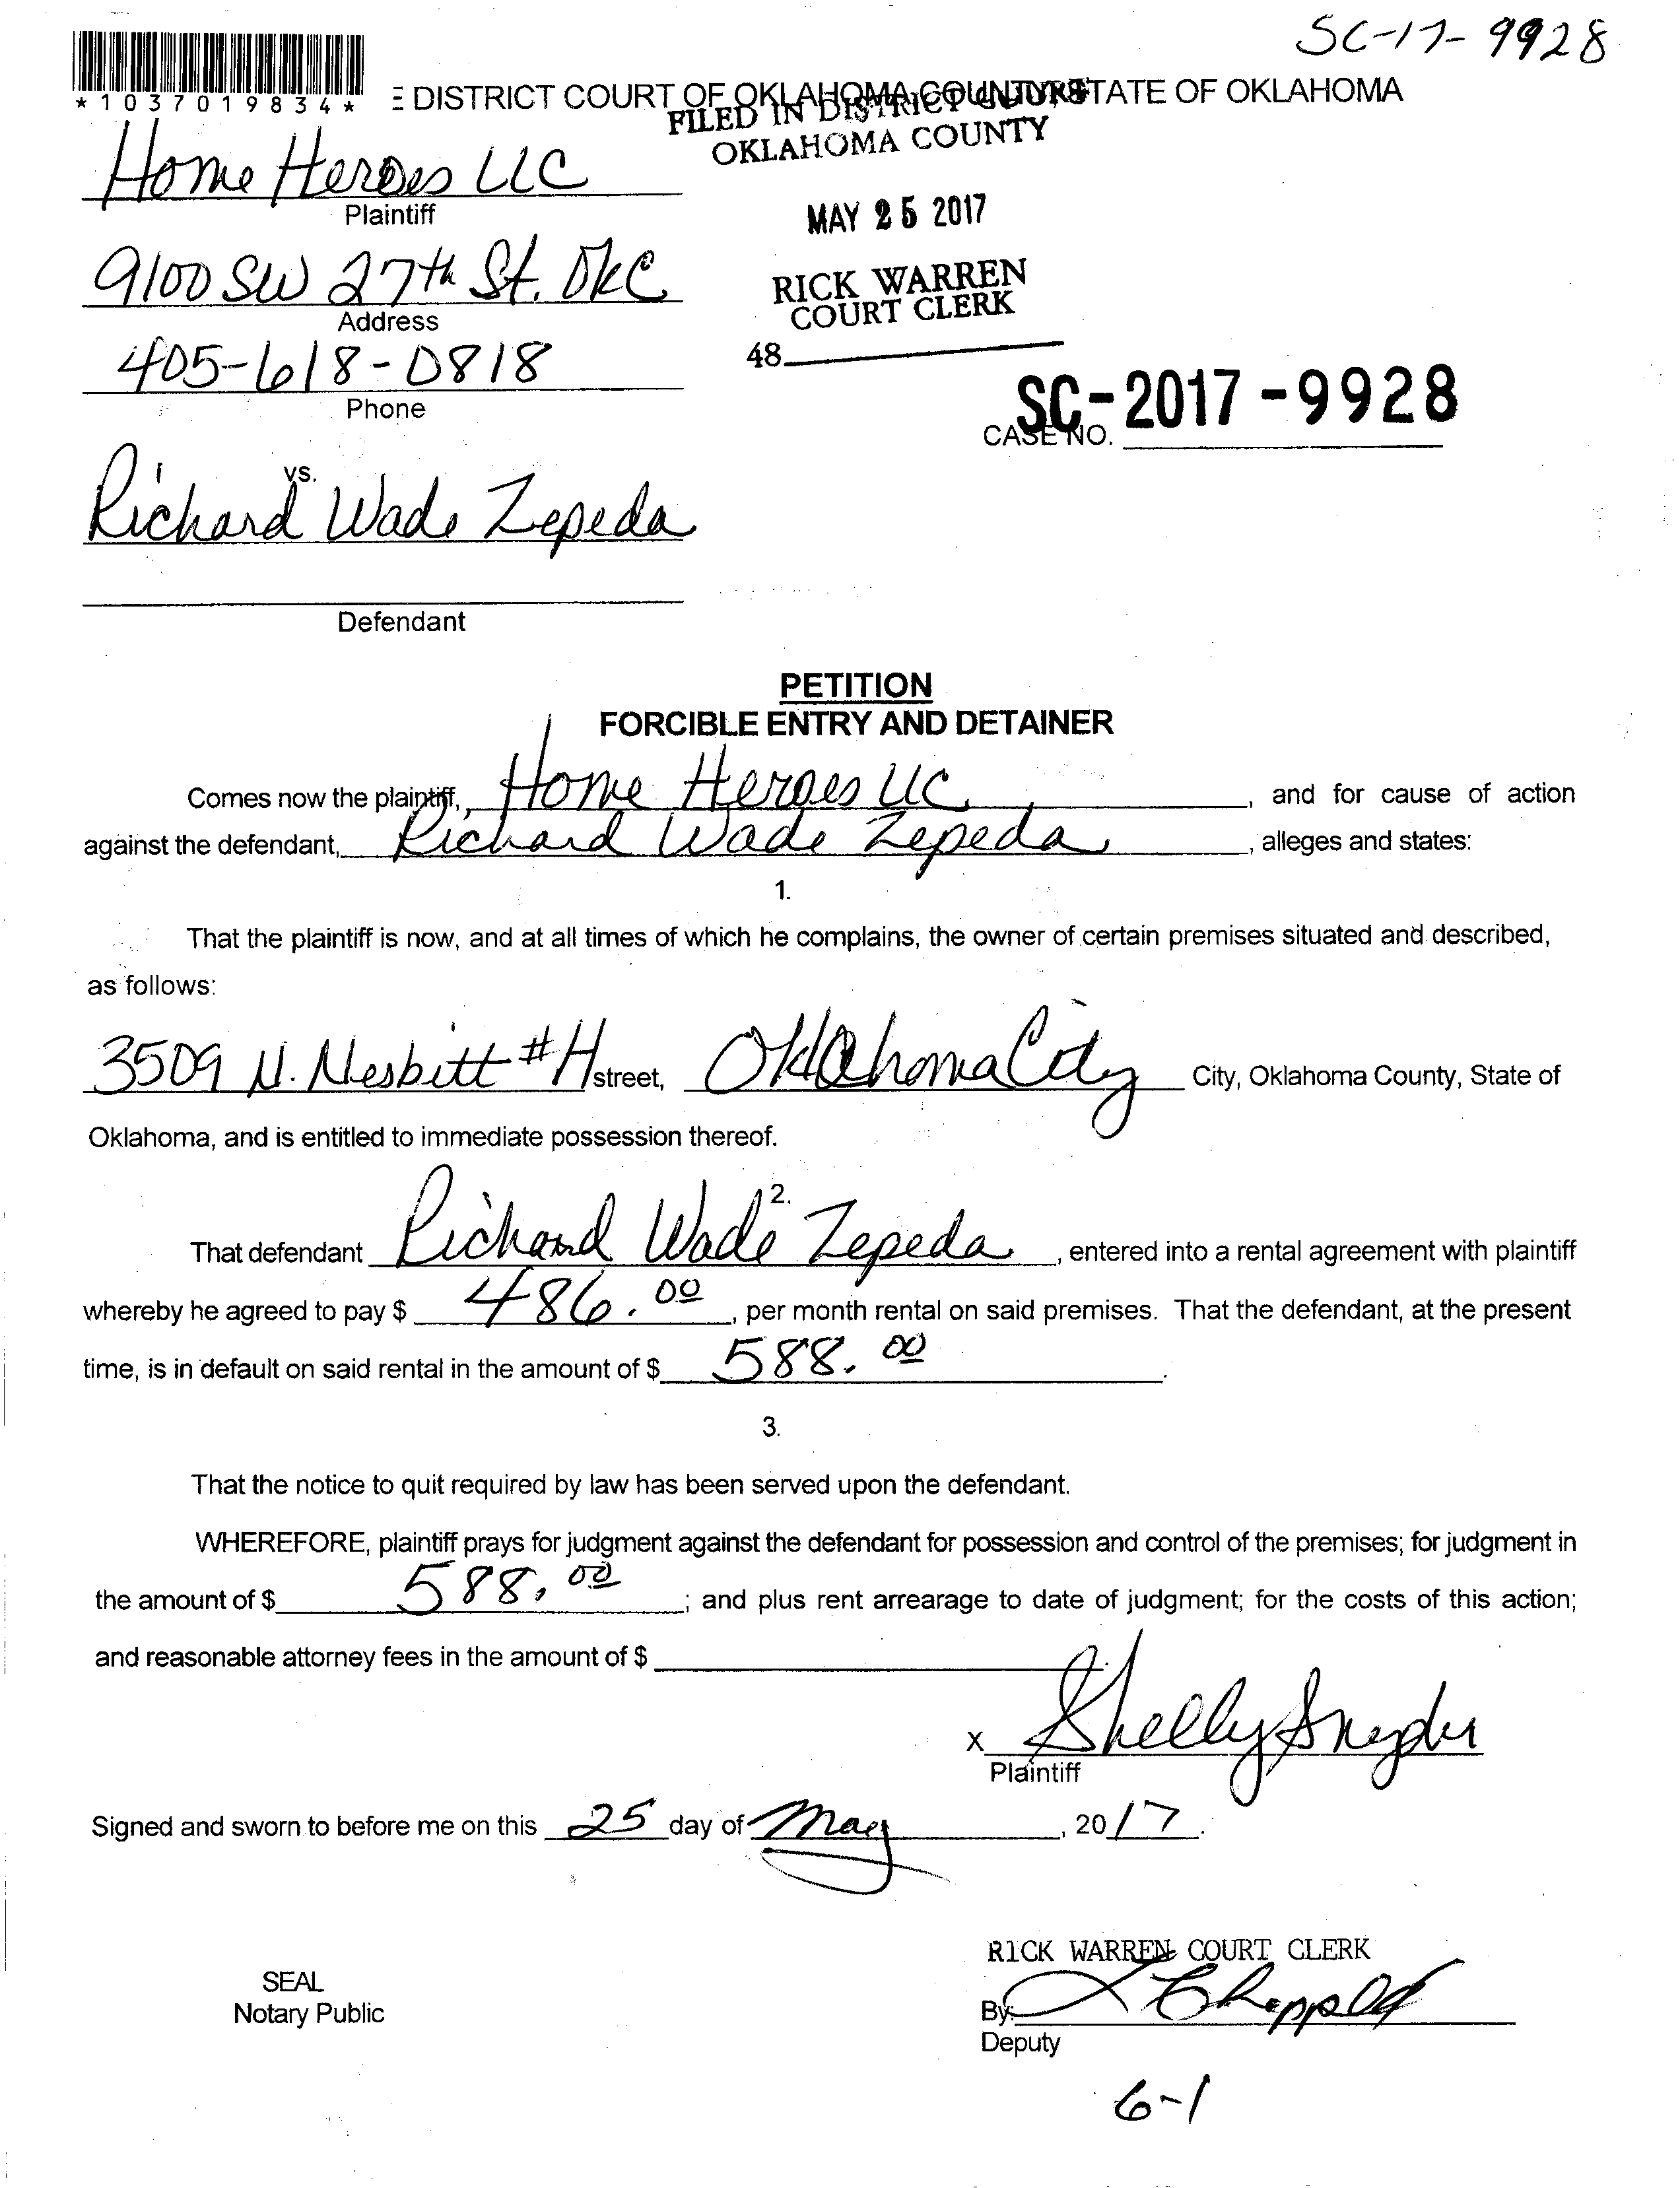 SC-17-9928
*1037019834*
E DISTRICT COURT OF OKLAHOMA COUNTY, STATE OF OKLAHOMA
FILED IN DISTRICT COURT
OKLAHOMA COUNTY
Home Heroes LLC
Plaintiff
MAY 25 2017
9100 SW 27th St. OKC
Address
RICK WARREN
COURT CLERK
405-618-0818
Phone
48
SC-2017-9928
CASE NO.
vs.
Richard Wade Zepeda
Defendant
PETITION
FORCIBLE ENTRY AND DETAINER
Comes now the plaintiff, Home Heroes LLC, and for cause of action
against the defendant, Richard Wade Zepeda, alleges and states:
1.
That the plaintiff is now, and at all times of which he complains, the owner of certain premises situated and described,
as follows:
3509 N. Nesbitt #H street, Oklahoma City City, Oklahoma County, State of
Oklahoma, and is entitled to immediate possession thereof.
2.
That defendant Richard Wade Zepeda, entered into a rental agreement with plaintiff
whereby he agreed to pay $ 486.00, per month rental on said premises. That the defendant, at the present
time, is in default on said rental in the amount of $ 588.00.
3.
That the notice to quit required by law has been served upon the defendant.
WHEREFORE, plaintiff prays for judgment against the defendant for possession and control of the premises; for judgment in
the amount of $ 588.00; and plus rent arrearage to date of judgment; for the costs of this action;
and reasonable attorney fees in the amount of $
x Shelly Snyder
Plaintiff
Signed and sworn to before me on this 25 day of May, 2017.
RICK WARREN COURT CLERK
SEAL
Notary Public
By:
Deputy
6-1